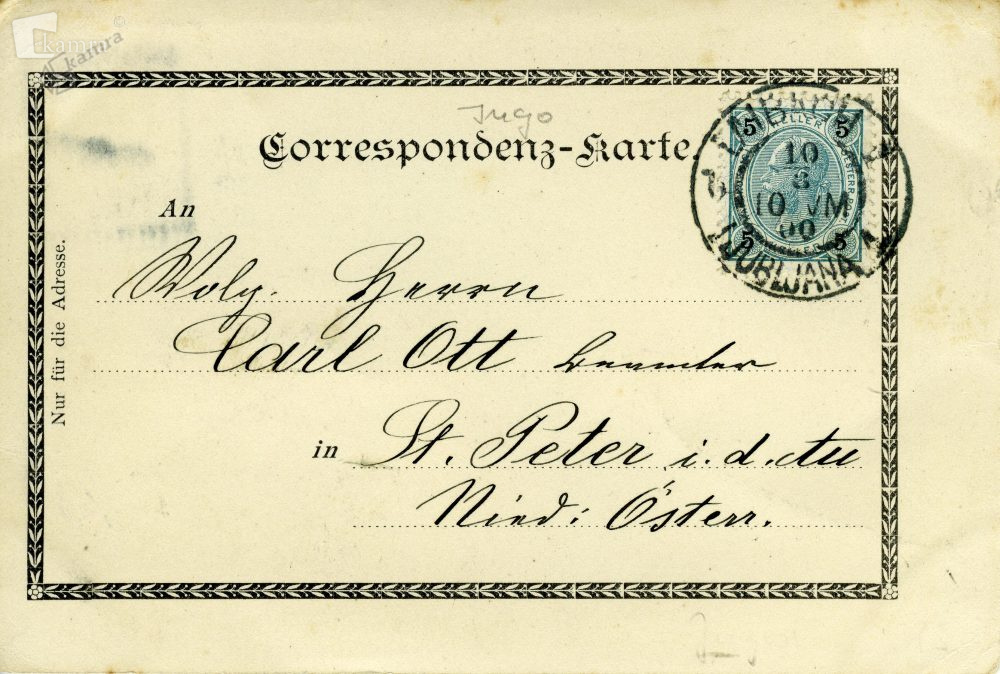 kamra ©
kamra
Jugo
Correspondenz-Karte
5 HELLER 5
LAIBACH
10
10 VM
00
LJUBLJANA
5 5
An
Nur für die Adresse.
Wolg. Herrn
Carl Ott Beamter
in St. Peter i. d. Au
Nied: Österr.